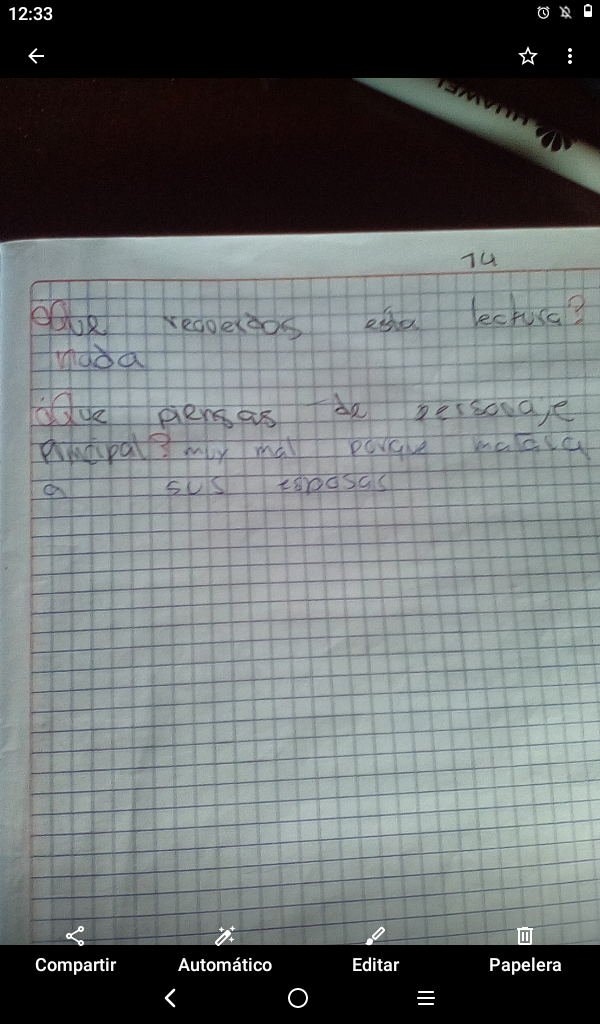 12:33
HUAWEI
14
¿Que recuerdos esta lectura?
nada
¿Que piensas de personaje
principal? muy mal porque mataba
a sus esposas
Compartir Automático Editar Papelera